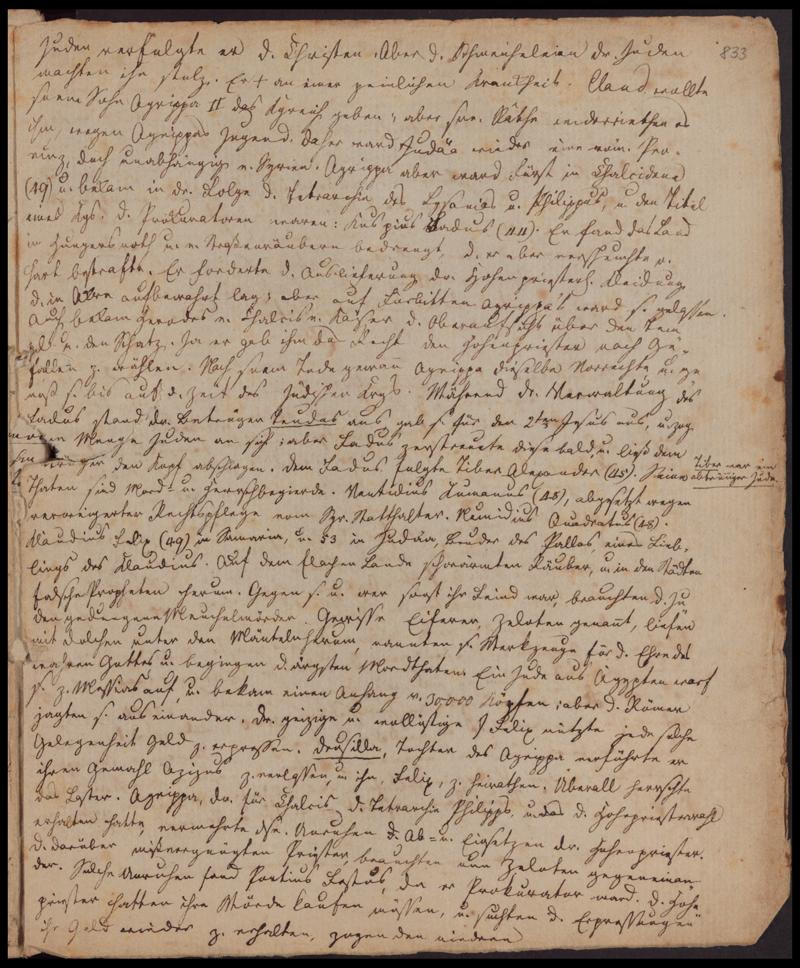 833
Juden verfolgte er d. Christen. Aber d. Schmeicheleien dr. Juden
machten ihn stolz. Er † an einer peinlichen Krankheit. Claud. wollte
seinem Sohn Agrippa II das Kgreich geben, aber sne. Räthe widerriethen es
ihm, wegen Agrippas Jugend. Daher ward Judäa wieder eine röm. Pro-
vinz, doch unabhängig v. Syrien. Agrippa aber ward Fürst in Chalcidene
(49) u. bekam in dr. Folge d. Tetrarchie des Lysanias u. Philippus, u den Titel
eines Kgs. d. Prokuratoren waren: Kuspius Fadus (44). Er fand das Land
in Hungersnoth u. v. Straßenräubern bedrängt, d. er aber verscheuchte u.
hart bestrafte. Er forderte d. Auslieferung dr. Hohenpriesterl. Kleidung,
d. in aufbewahrt lag; aber auf Fürbitten Agrippa's ward s. gelassen.
Auch bekam Herodes v. Chalcis v. Kaiser d. Oberaufsicht über den Tem-
pel u. den Schatz. Ja er gab ihm das Recht den Hohenpriester nach Ge-
fallen z. wählen. Nach snem Tode gewann Agrippa dieselben Vorrechte u. ge-
noß s. bis auf d. Zeit des Jüdischen Krgs. Während dr. Verwaltung des
Fadus stand dr. Betrüger Teudas auf, gab s. für den 2ten Jesus aus, u. zog
eine Menge Juden an sich; aber Fadus zerstreute diese bald, u. ließ dem
den Kopf abschlagen. Dem Fadus folgte Tiber Alexander (45). Seine
Tiber war ein
abtrünniger Jude.
Thaten sind Mord- u. Herrschbegierde. Ventidius Kumanus (48), abgesetzt wegen
verweigerter Rechtspflege vom Syr. Statthalter. Numidius Quadratus (48).
Klaudius Felix (49) in Samaria, u. 53 in Judäa, Bruder des Pallas, eines Lieb-
lings des Klaudius. Auf dem flachen Lande schwärmten Räuber, u. in den Städten
falsche Propheten herum. Gegen s. u. wer sonst ihr Feind war, brauchten d. Ju-
den gedungene Meuchelmörder. Gewisse Eiferer, Zeloten genannt, liefen
mit Dolchen unter den Mänteln herum, nannten s. Werkzeuge für d. Ehre des
wahren Gottes u. begingen d. ärgsten Mordthaten. Ein Jude aus Ägypten warf
s. z. Messias auf, u. bekam einen Anhang v. 30000 Köpfen; aber d. Römer
jagten s. auseinander. Dr. geizige u. wollüstige Felix nützte jede solche
Gelegenheit Geld z. erpressen. Drusilla, Tochter des Agrippa verführte er
ihren Gemahl Azizus z. verlassen, u. ihn, Felix, z. heirathen. Überall herrschte
das Laster. Agrippa, dr. für Chalcis d. Tetrarchie Philipps, u. das d. Hohepriesterwahl
erhalten hatte, vermehrte dse. Unruhen d. Ab- u. Einsetzen dr. Hohenpriester.
D. darüber mißvergnügten Priester, brauchten nun Zeloten gegeneinan-
der. Solche Unruhen fand Portius Festus, da er Prokurator ward. D. Hohe-
priester hatten ihre Würde kaufen müssen, u. suchten d. Erpressungen
ihr Geld wieder z. erhalten, zogen den niedern